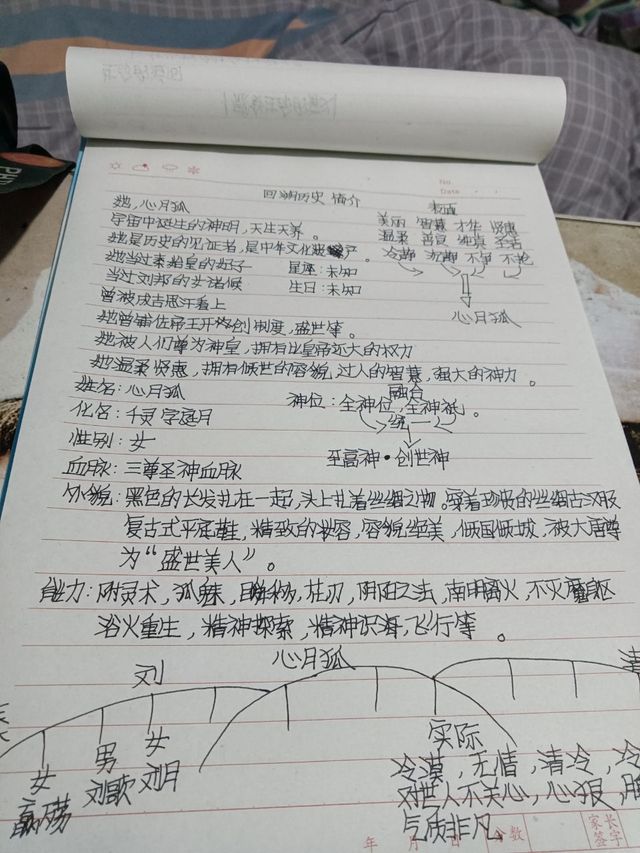 No.
Date
回溯历史 简介
表面
她,心月狐
美丽 智慧 才华 贤惠
宇宙中诞生的神明,天生天养。
温柔 善良 纯真 圣洁
她是历史的见证者,是中华文化
冷静 沉静 不争 不抢
她当过秦始皇的妃子 星座:未知
当过刘邦的女诸侯 生日:未知
心月狐
曾被成吉思汗看上
她曾辅佐帝王开创制度,盛世等。
她被人们尊为神皇,拥有比皇帝还大的权力
她温柔贤惠,拥有倾世的容貌,过人的智慧,强大的神力。
姓名:心月狐
融合
神位:全神位,全神祇。
化名:千灵 字庭月
统一
性别:女
至高神·创世神
血脉:三尊圣神血脉
外貌:黑色的长发扎在一起,头上扎着丝绸之物。穿着珍贵的丝绸古汉服
复古式平底鞋,精致的妆容,容貌绝美,倾国倾城,被大唐尊
为“盛世美人”。
能力:附灵术,狐魅,阴阳之法,南明离火,不灭
浴火重生,精神探索,精神识海,飞行等。
心月狐
刘
秦
清
女
嬴荡
男
刘歌
女
刘月
实际
冷漠,无情,清冷,冷
对世人不关心,心狠,
气质非凡
年 月 日
分数
家长
签字